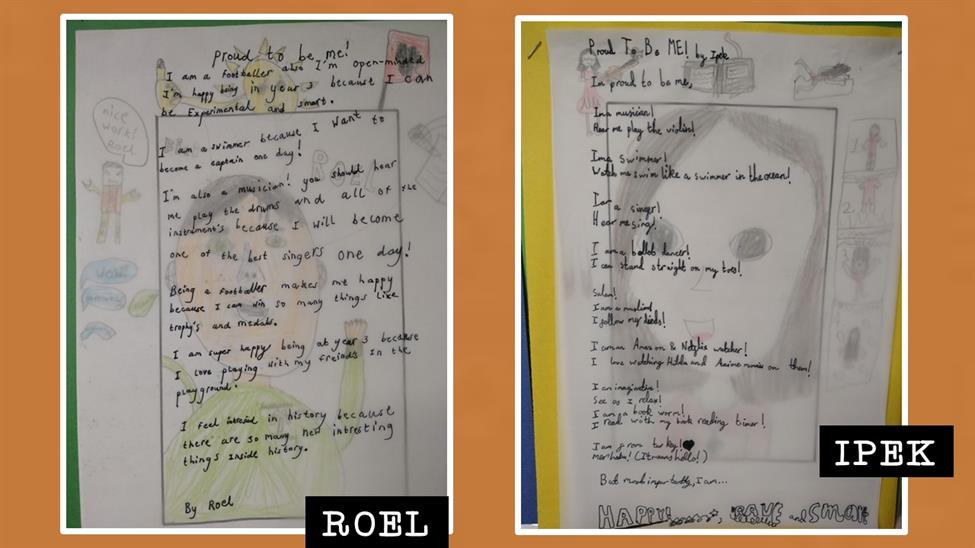 proud to be me!
I am a footballer also I'm open-minded
I'm happy being in year 3 because I can
be Experimental and smart.
I am a swimmer because I want to
become a captain one day!
I'm also a musician! you should hear
me play the drums and all of the
instruments because I will become
one of the best singers one day!
Being a footballer makes me happy
because I can win so many things like
trophy's and medals.
I am super happy being at year 3 because
I love playing with my freinds in the
playground.
I feel intrested in history because
there are so many new intresting
things inside history.
By Roel
nice
work!
Roel
wow!
ROEL
Proud To Be ME! by Ipek
Im proud to be me,
Im a musician!
Hear me play the violin!
Im a swimmer!
Watch me swim like a swimmer in the ocean!
I am a singer!
Hear me sing!
I am a ballet dancer!
I can stand straight on my toes!
Salam!
I am a muslim!
I follow my deeds!
I am an Amazon & Netflix watcher!
I love watching Hilda and Anime movies on them!
I am imaginative!
See as I relax!
I am a book worm!
I read with my book reading timer!
I am from turkey!
merhaba! (It means hello!)
But most importantly, I am...
HAPPY!, BRAVE and SMART
1
2
IPEK